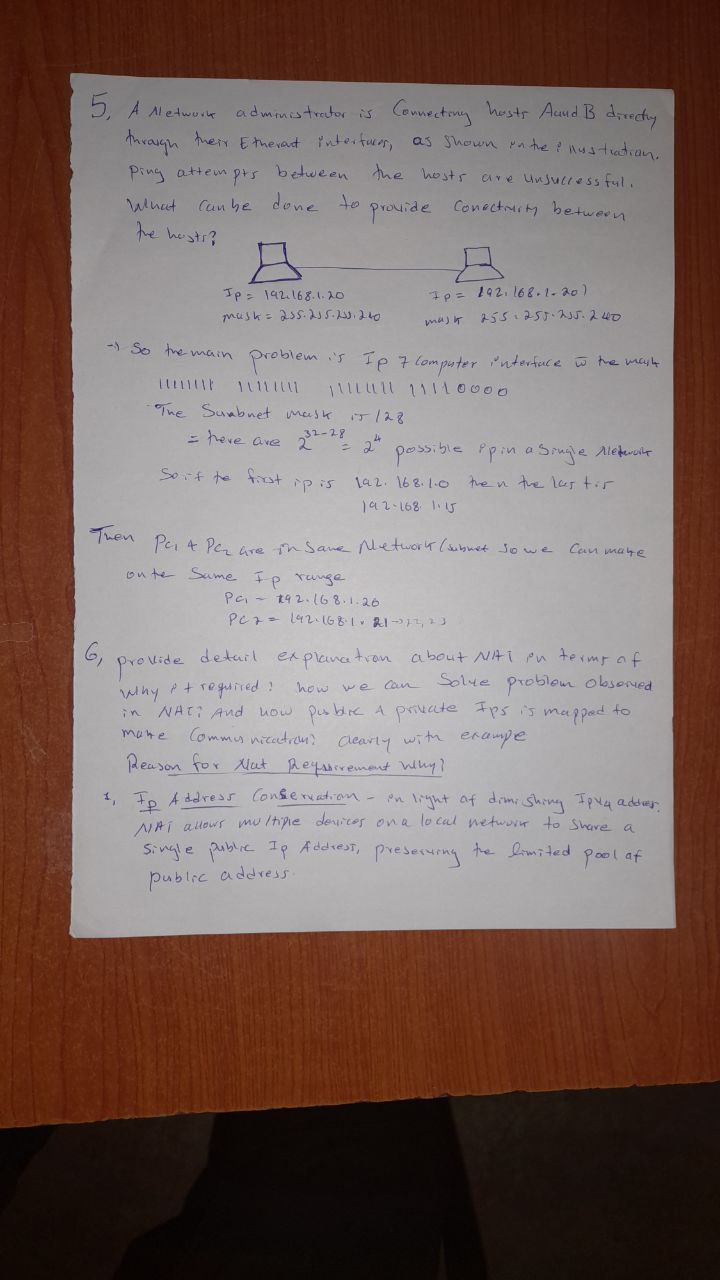 5, A Network administrator is Connecting hosts A and B directly
through their Ethernet interfaces, as shown in the illustration.
Ping attempts between the hosts are unsuccessful.
What can be done to provide Conectivity between
the hosts?
Ip = 192.168.1.20
Ip = 192.168.1.201
mask = 255.255.255.240
mask 255.255.255.240
→ So the main problem is Ip 7 Computer interface the mask
11111111 11111111 11111111 11110000
The Sunbnet mask is /28
= there are 2^32-28 = 2^4 possible ip in a Single Network
So if the first ip is 192.168.1.0 then the last is
192.168.1.15
Then PC1 & PC2 are in Same Network/subnet so we can make
on the Same Ip range
PC1 - 192.168.1.20
PC2 = 192.168.1.21 → 22, 23
6, provide detail explanation about NAT in terms of
why it required? how we can Solve problem observed
in NAT? And how public & private Ips is mapped to
make Communication? clearly with example
Reason for Nat Requirement Why?
1, Ip Address Conservation - in light of dimishing Ipv4 addres.
NAT allows multiple devices on a local network to Share a
Single public Ip Address, preserving the limited pool of
public address.